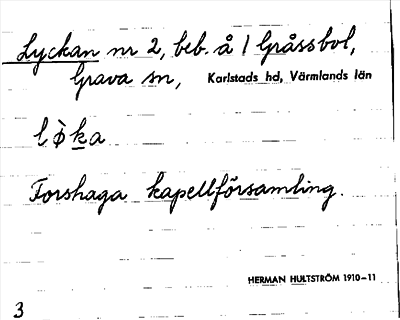 Lyckan nr 2, beb. å 1 Gråssbol,
Grava sn, Karlstads hd, Värmlands län
lø̀ka
Forshaga kapellförsamling.
HERMAN HULTSTRÖM 1910–11
3